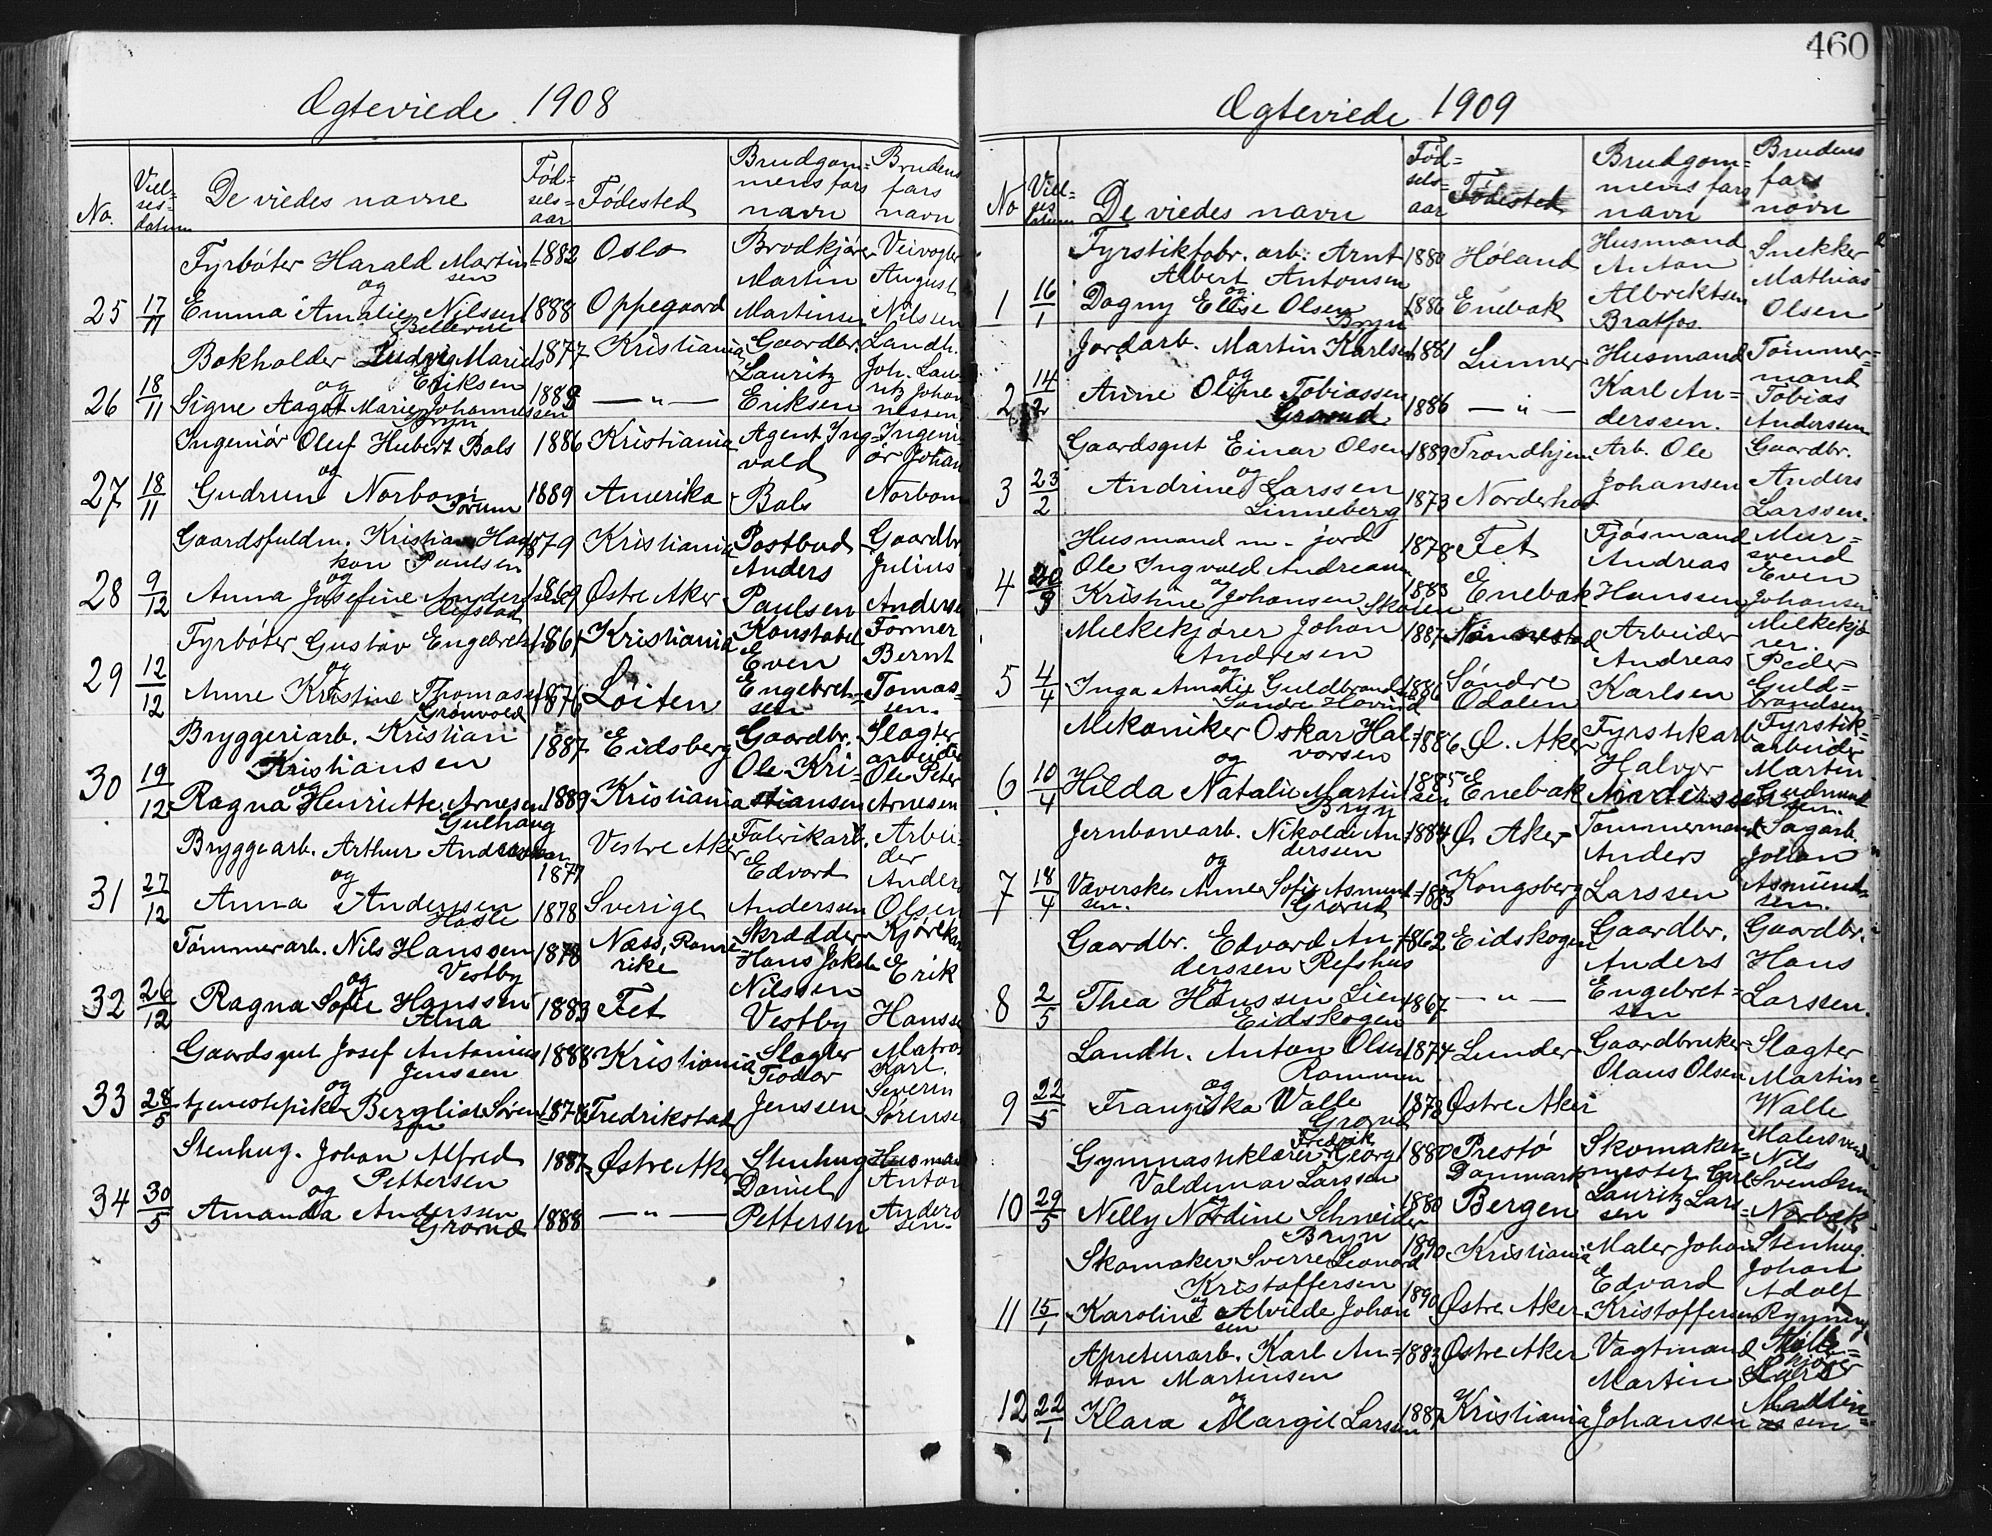 460
Ægteviede 1908
No.
Viel-
ses-
datum
De viedes navne
Fød-
sels-
aar
Fødested
Brudgom-
mens fars
navn
Brudens
fars
navn
Fyrbøter Harald Martin- 1882 Oslo Brodkjører Veivogter
sen
og Martin August
25 17/11 Emma Amalie Nilsen 1888 Oppegaard Martinsen Nilsen
Bellevue
Bokholder Ludvig Marius 1877 Kristiania Gaardbr. Landh.
Eriksen
og Lauritz Joh. Lau-
26 18/11 Signe Aagot Marie Johannessen 1888 — " — Eriksen ritz Johan
Bryn nessen
Ingeniør Oluf Hubert Bals 1886 Kristiania Agent Ing- Ingeni-
og vald ør Johan
27 18/11 Gudrun Norbom 1889 Amerika Bals Norbom
Gaardsfuldm. Kristian Haa- 1879 Kristiania Postbud Gaardbr.
kon Paulsen Anders Julius
og
28 9/12 Anna Josefine Andersen 1869 Østre Aker Paulsen Anderse
Refstad
Fyrbøter Gustav Engebretsen 1861 Kristiania Konstabel Former
og Even Bernt
29 12/12 Anne Kristine Thomassen 1876 Løiten Engebret- Tomas-
Grønvold sen sen.
Bryggeriarb. Kristian 1887 Eidsberg Gaardbr. Slagter
Kristiansen arbeider
og Ole Kri- Ole Peter
30 19/12 Ragna Henriette Arnesen 1889 Kristiania stiansen Arnesen
Gulhaug
Bryggearb. Arthur Anderssen 1877 Vestre Aker Fabrikarb. Arbei-
der
og Edvard Anders
31 27/12 Anna Andersen 1878 Sverige Anderssen Olsen
Hasle
Tømmerarb. Nils Hanssen 1878 Næss, Rome- Skrædder Kjørekar
Vestby rike Hans Jakob Erik
og Nilssen
32 26/12 Ragna Sofie Hanssen 1883 Fet Vestby Hansse
Alna
Gaardsgut Josef Antonius 1888 Kristiania Slagter Matros
Jenssen Teodor Karl
og Severin
33 28/5 tjenestepike Bergliot Søren- 1878 Fredrikstad Jenssen Sørense
sen
Stenhug. Johan Alfred 1887 Østre Aker Stenhug. Husmand
Pettersen Daniel Anton
og
34 30/5 Amanda Anderssen 1888 — " — Pettersen Anders
Grorud sen.
Ægteviede 1909
No
Viel-
ses
datum
De viedes navn
Fød-
sels-
aar
Fødested
Brudgom-
mens fars
navn
Brudens
fars
navn
Fyrstikfabr. arb. Arnt 1880 Høland Husmand Snekker
Albert Antonsen Anton Mathias
og Albrektsen
1 16/1 Dagny Elise Olsen 1886 Enebak Bratfos. Olsen
Bryn
Jordarb. Martin Karlsen 1881 Lunner Husmand Tømmer-
og mand
2 14/2 Anne Oline Tobiassen 1886 — " — Karl An- Tobias
Grorud derssen. Andersen
Gaardsgut Einar Olsen 1889 Trondhjem Arb. Ole Gaardbr.
og
3 23/2 Andrine Larssen 1873 Norderhov Johansen Anders
Linneberg Larssen.
Husmand m. jord 1878 Fet Fjøsmand Mur-
Ole Ingvald Andreassen Andreas svend
og Even
4 20/3 Kristine Johansen 1883 Enebak Hanssen Johansen
Skøien
Melkekjører Johan 1887 Nannestad Arbeider Melkekjø-
Andresen Andreas rer.
og Peder
5 4/4 Inga Amalie Guldbrandsen 1886 Søndre Karlsen Guld-
Søndre Hovind Odalen brandsen
Mekaniker Oskar Hal- 1886 Ø. Aker Fyrstikarb Fyrstik-
vorsen arbeider
og Halvor Martin
6 10/4 Hilda Natalie Martin- 1885 Enebak Andersen Gudmund-
sen
Bryn sen.
Jernbanearb. Nikolai An- 1884 Ø. Aker Tømmermand Sagarb.
derssen Anders Johan
og
7 18/4 Væverske Anne Sofie Asmund- 1883 Kongsberg Larssen Asmund-
sen. Grorud sen.
Gaardbr. Edvard An- 1862 Eidskogen Gaardbr. Gaardbr.
derssen Refshus Anders Hans
og
8 2/5 Thea Hanssen Lien 1867 — " — Engebret- Larssen.
Eidskogen sen
Landh. Anton Olsen 1874 Lunder Gaardbruker Slagter
Rammen Olaus Olsen Martin
og
9 22/5 Franziska Walle 1878 Østre Aker Walle
Grorud
Fredrik
Gymnastiklærer Georg 1880 Prestø Skomaker- Malersvend
Valdemar Larssen Danmark mester Carl Nils
og Lauritz Lars- Svendsen
10 29/5 Nelly Nordine Schneider 1880 Bergen sen Norbæk
Bryn
Skomaker Sverre Leonard 1890 Kristiania Maler Johan Stenhug.
Kristoffersen Edvard Johan
og Adolf
11 15/1 Karoline Alvilde Johan 1890 Østre Aker Kristoffersen Ryning
sen
Apreturarb. Karl An- 1883 Østre Aker Vagtmand Melke-
ton Martinsen Martin kjører
og
12 22/1 Klara Margit Larsen 1887 Kristiania Johansen